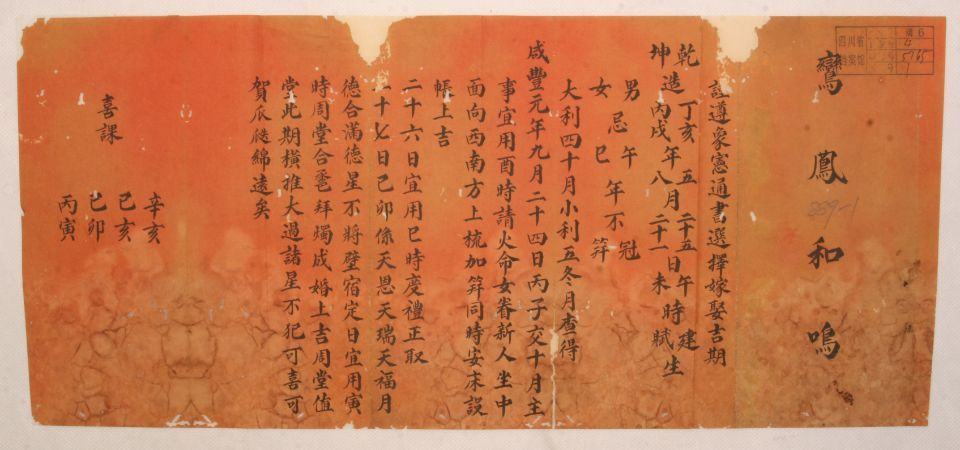 鸞鳳和鳴
謹遵象憲通書選擇嫁娶吉期
乾造丁亥年五月二十五日午時建生
坤造丙戌年八月二十一日未時賦生
男忌午年不冠
女忌巳年不笄
大利四十月小利五冬月查得
咸豐元年九月二十四日丙子交十月主
事宜用酉時請火命女眷新人坐中
面向西南方上梳加笄同時安床設
帳上吉
二十六日宜用巳時慶禮正取
二十七日己卯係天恩天瑞天福月
德合滿德星不將壁宿定日宜用寅
時周堂合巹拜燭成婚上吉周堂值
堂此期橫推大過諸星不犯可喜可
賀瓜瓞綿遠矣
喜課
辛亥
己亥
己卯
丙寅
四川省
档案馆
359-1